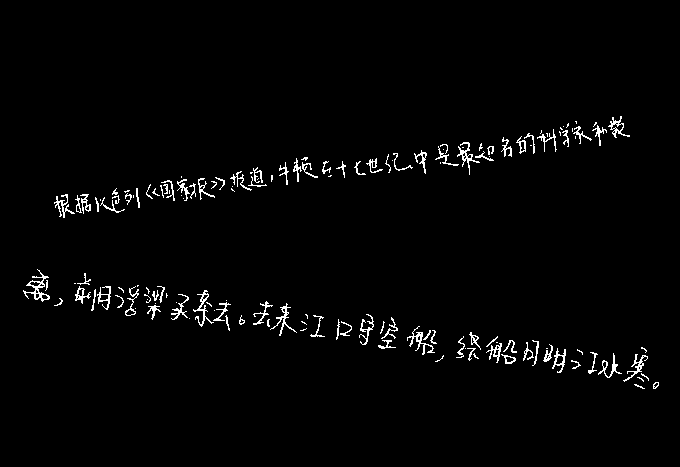 根据以色列《国家报》报道,牛顿在十七世纪中是最知名的科学家和数
离,前月浮梁买茶去。去来江口守空船,绕船月明江水寒。